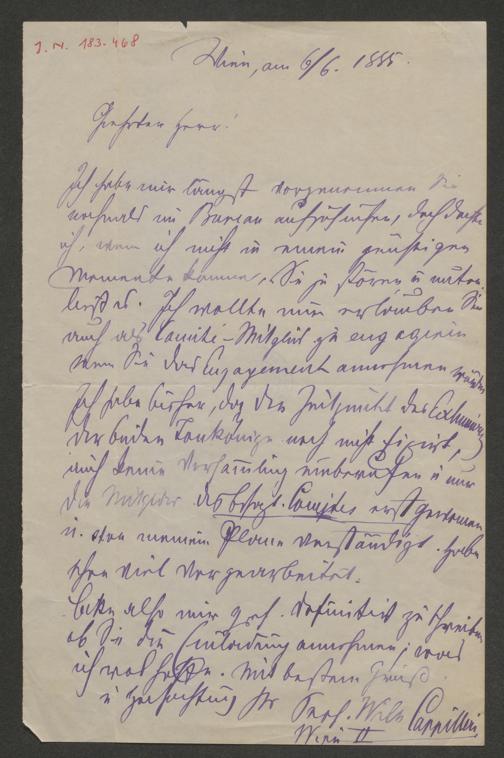 J. N. 183.468
Wien, am 6/6. 1885.
Geehrter Herr!
Ich habe mir längst vorgenommen Sie
nochmals im Bureau aufzusuchen, doch dachte
ich, wenn ich nicht in einem günstigen
Momente komme, Sie zu stören u. unter-
ließ es. Ich wollte mir erlauben Sie
auch als Comité-Mitglied zu engagieren
wenn Sie das Engagement annehmen würden
Ich habe bisher, da der Zeitpunkt der
der beiden Tonkönige noch nicht fixirt,
auch keine Versammlung einberufen u. nur
die Mitglieder des besagt. Comités erst
u. von meinem Plane verständigt. habe
schon viel vorgearbeitet.
Bitte also mir gef. definitiv zu schreiben
ob Sie die Einladung annehmen; was
ich wol hoffe. Mit bestem Gruß
u. Hochachtung Ihr Prof. Wilh. Cappilleri
Wien II